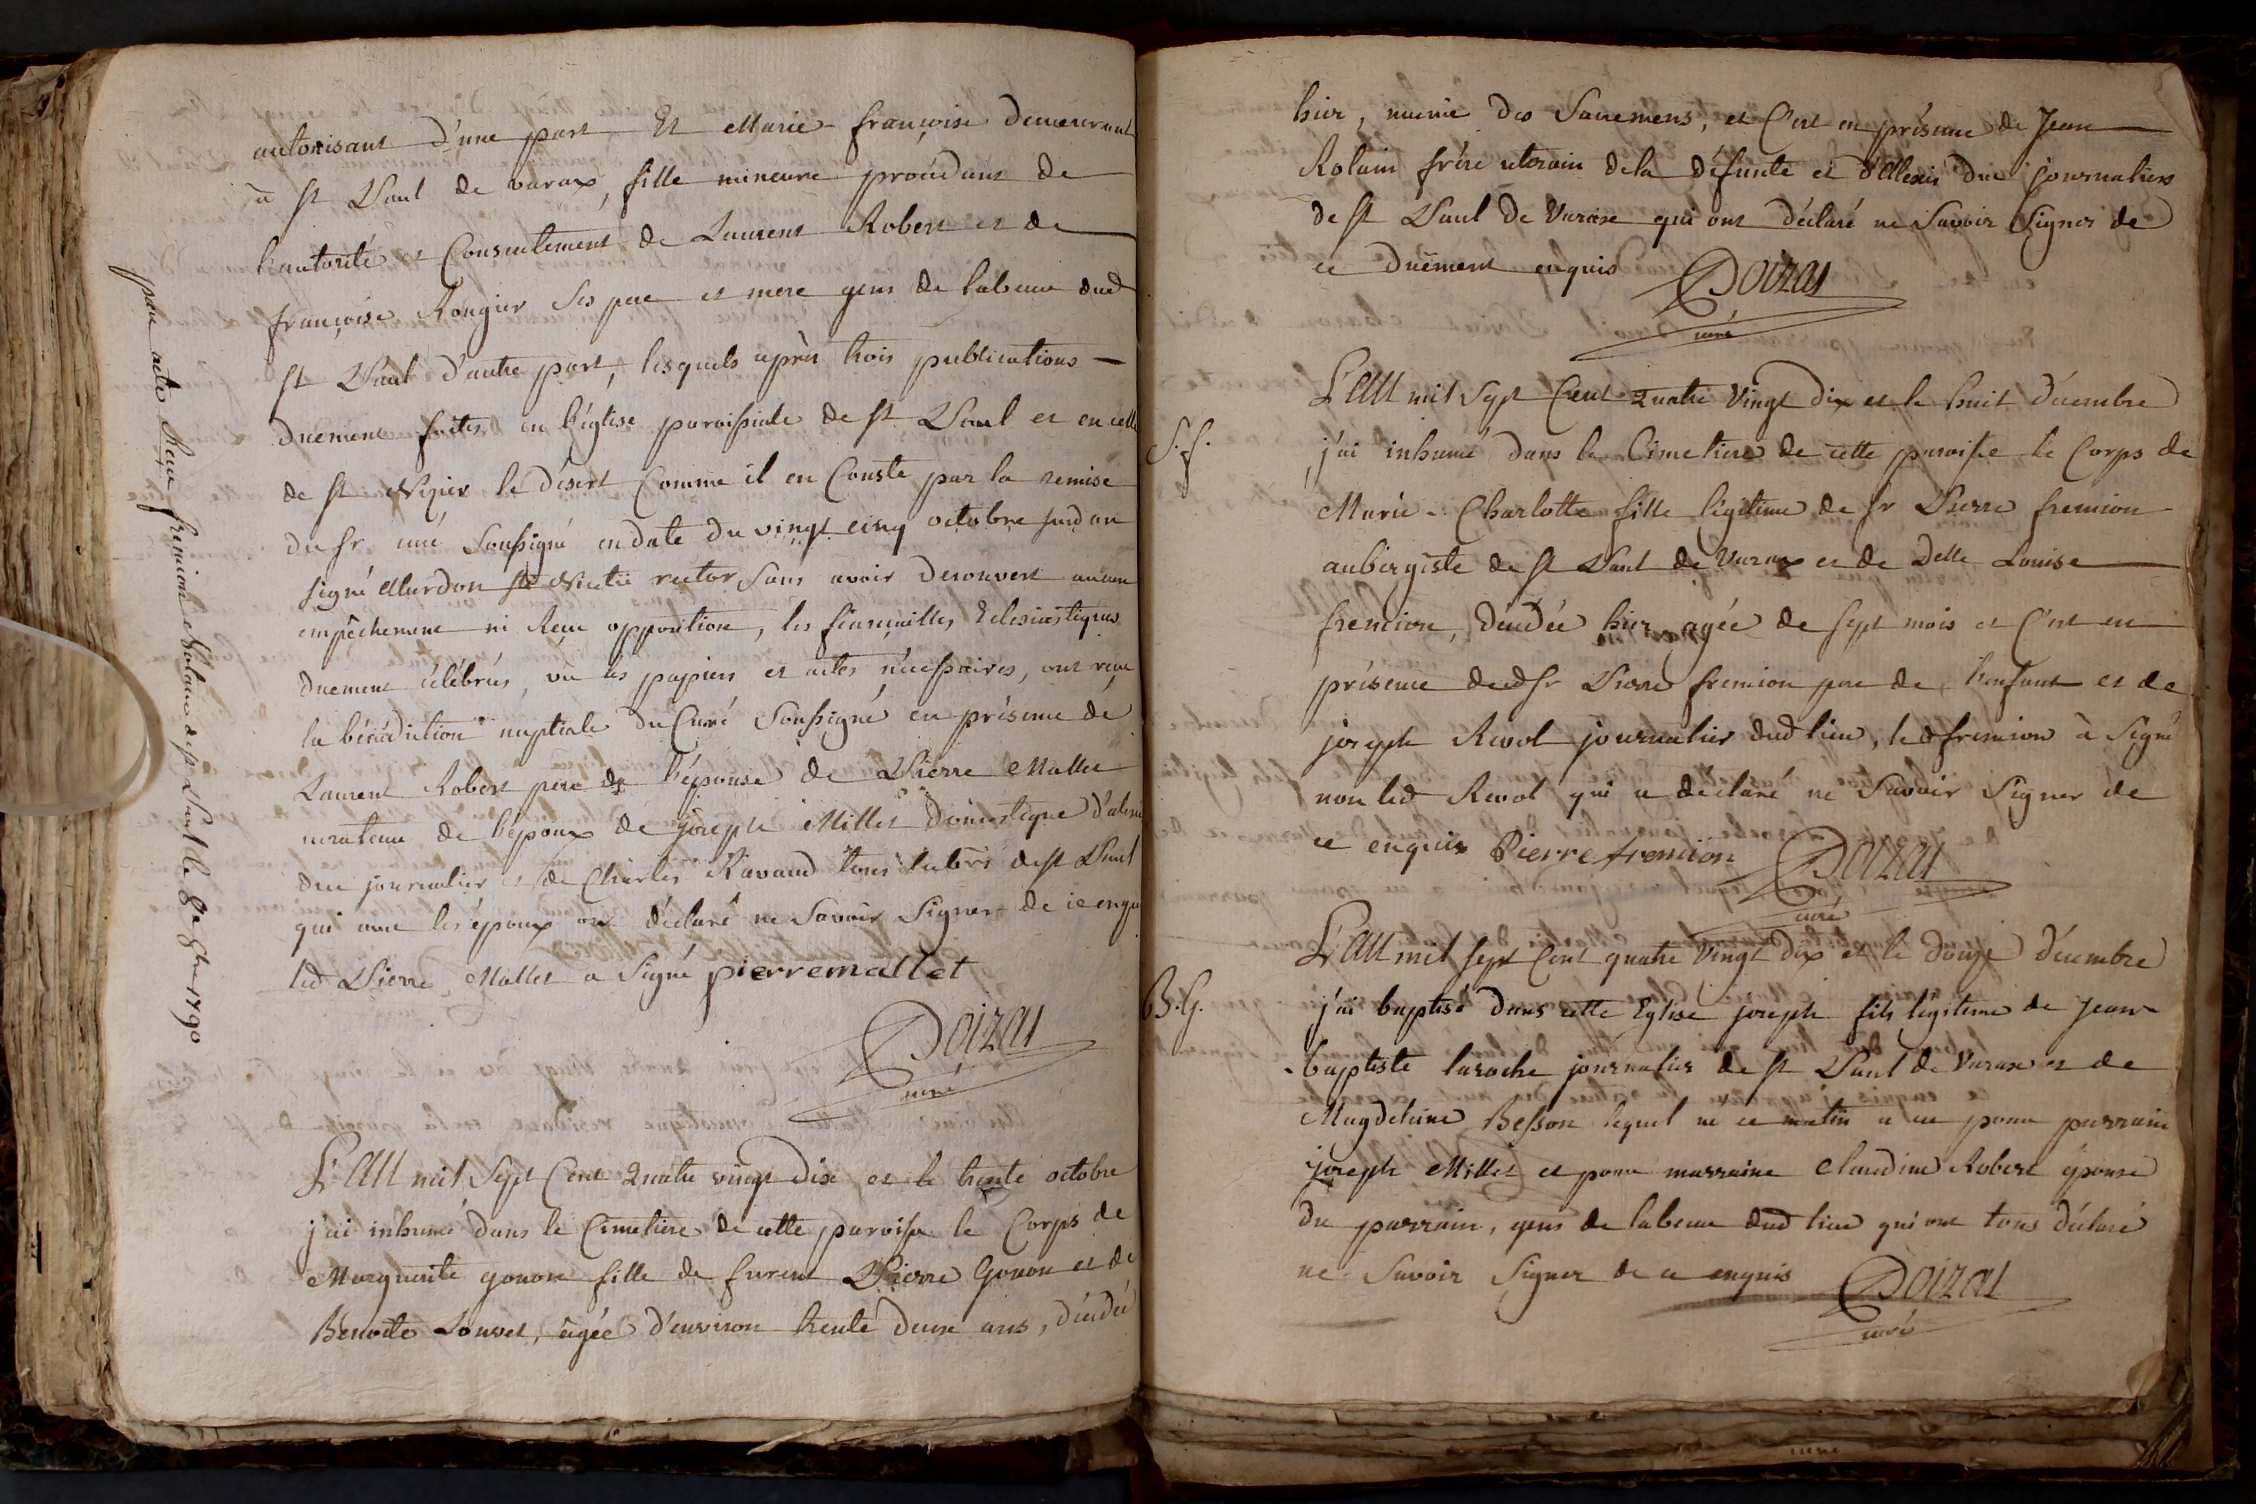 autorisant d'une part Et Marie-françoise demeurant
à st Paul de varax, fille mineure procédant de
l'autorité et Consentement de Laurent Robert et de
françoise Rongier ses pere et mere gens de labeur dud
st Paul d'autre part, lesquels après trois publications
duement faites en l'église paroissiale de st Paul et en celle
de st Nizier le désert Comme il en Conste par la remise
du sr curé soussigné en date du vingt cinq octobre sud an
signé Mardon sti Nicetii rector sans avoir decouvert aucun
empêchement ni Reçu opposition, les fiançailles Eclesiastiques
duement célébrées, vu les papiers et actes nécessaires, ont reçu
la bénédiction nuptiale du Curé soussigné en présence de
Laurent Robert pere de l'épouse de Pierre Mallet
curateur de l'époux de joseph Millet domestique d'alexis
duc journalier et de Charles Ravaud tous habts de st Paul
qui avec les époux ont déclaré ne savoir signer de ce enquis
led Pierre Mallet a signé pierre mallet
Doizat
curé
L'an mil sept Cent quatre vingt dix et le trente octobre
j'ai inhumé dans le Cimetiere de cette paroisse le Corps de
Marguerite gonon fille de furent Pierre Gonon et de
Benoite Louvet, agée d'environ trente deux ans, décédée
pour acte Reçu fremion Notaire de st Paul le 8e 9bre 1790
hier, munie des sacremens, et C'est en présence de Jean
Rolain frère uterain de la défunte et d'Alexis duc journaliers
de st Paul de Varax qui ont déclaré ne savoir signer de
ce duëment enquis Doizat
curé
L'an mil sept Cent quatre Vingt dix et le huit décembre
S. f.
j'ai inhumé dans le Cimetiere de cette paroisse le Corps de
Marie-Charlotte fille légitime de sr Pierre fremion
aubergiste de st Paul de Varax et de Delle Louise
fremion, décédée hier agée de sept mois et C'est en
présence dud sr Pierre fremion pere de l'enfant et de
joseph Revol journalier dud lieu, led fremion à signé
non led Revol qui a déclaré ne savoir signer de
ce enquis Pierre fremion Doizat
curé
L'an mil sept Cent quatre Vingt dix et le douze décembre
B. G.
j'ai baptisé dans cette Eglise joseph fils légitime de jean
-baptiste laroche journalier de st Paul de Varax et de
Magdelaine Besson lequel né ce matin a eu pour parrain
joseph Millet et pour marraine Claudine Robert épouse
du parrain, gens de labeur dud lieu qui ont tous déclaré
ne savoir signer de ce enquis Doizat
curé